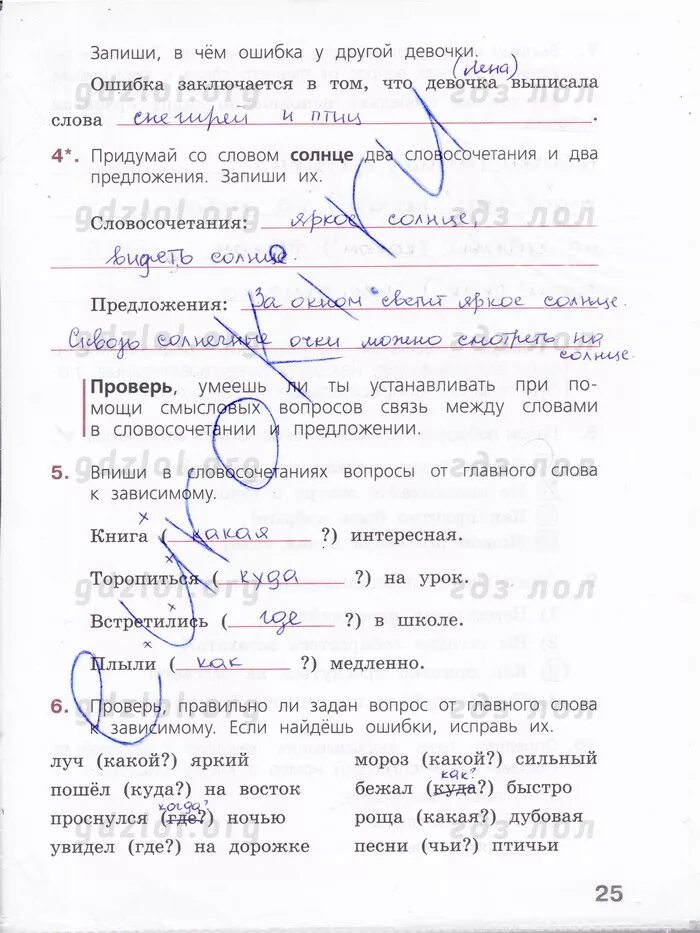 Запиши, в чём ошибка у другой девочки.
(Лена)
Ошибка заключается в том, что девочка выписала
gdzlol.org гдз лол
слова снегирей и птиц.
4*. Придумай со словом солнце два словосочетания и два
предложения. Запиши их.
gdzlol.org гдз лол
Словосочетания: яркое солнце,
видеть солнце.
Предложения: За окном светит яркое солнце.
gdzlol.org гдз лол
Сквозь солнечные очки можно смотреть на
солнце.
Проверь, умеешь ли ты устанавливать при по-
мощи смысловых вопросов связь между словами
в словосочетании и предложении.
gdzlol.org гдз лол
5. Впиши в словосочетаниях вопросы от главного слова
к зависимому.
Книга (какая ?) интересная.
Торопиться (куда ?) на урок.
gdzlol.org гдз лол
Встретились (где ?) в школе.
Плыли (как ?) медленно.
6. Проверь, правильно ли задан вопрос от главного слова
gdzlol.org гдз лол
к зависимому. Если найдёшь ошибки, исправь их.
луч (какой?) яркий мороз (какой?) сильный
как?
пошёл (куда?) на восток бежал (куда?) быстро
когда?
проснулся (где?) ночью роща (какая?) дубовая
gdzlol.org гдз лол
увидел (где?) на дорожке песни (чьи?) птичьи
25